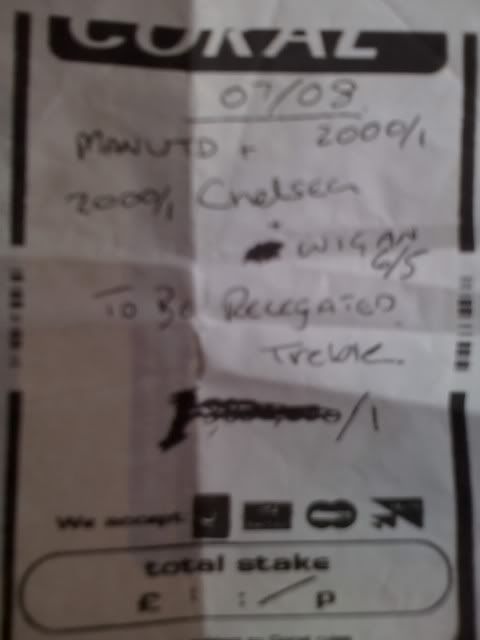 CORAL
07/08
MAN UTD + 2000/1
2000/1 Chelsea
+ WIGAN
6/5
To Be RELEGATED
Treble.
/1
We accept
total stake
£ : : / p